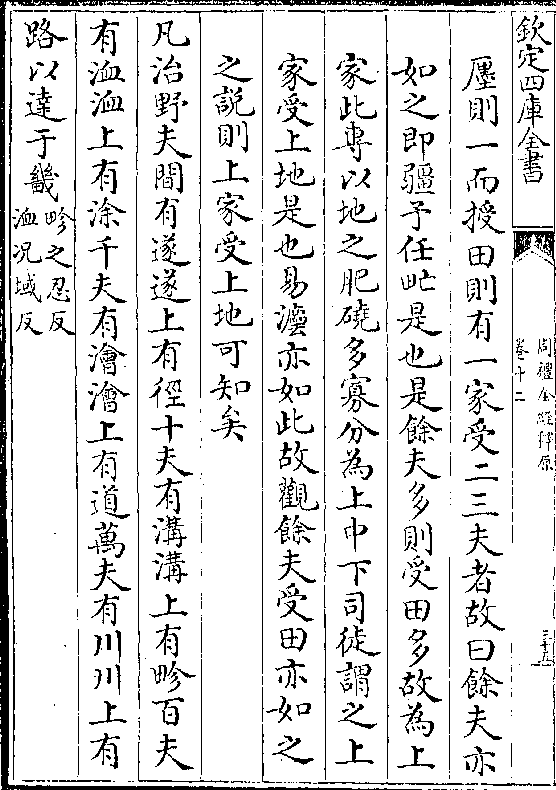 欽定四庫全書
周禮全經釋原
卷十二
三十五
廛則一而授田則有一家受二三夫者故曰餘夫亦
如之即疆予任甿是也是餘夫多則受田多故為上
家此専以地之肥磽多寡分為上中下司徒謂之上
家受上地是也易瀍亦如此故觀餘夫受田亦如之
之説則上家受上地可知矣
凡治野夫間有遂遂上有徑十夫有溝溝上有畛百夫
有洫洫上有涂千夫有澮澮上有道萬夫有川川上有
路以達于畿畛之忍反
洫况域反